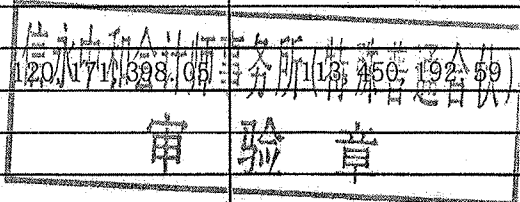 信永中和会计师事务所(特殊普通合伙)
120,171,398.05 113,450,192.59
审验章